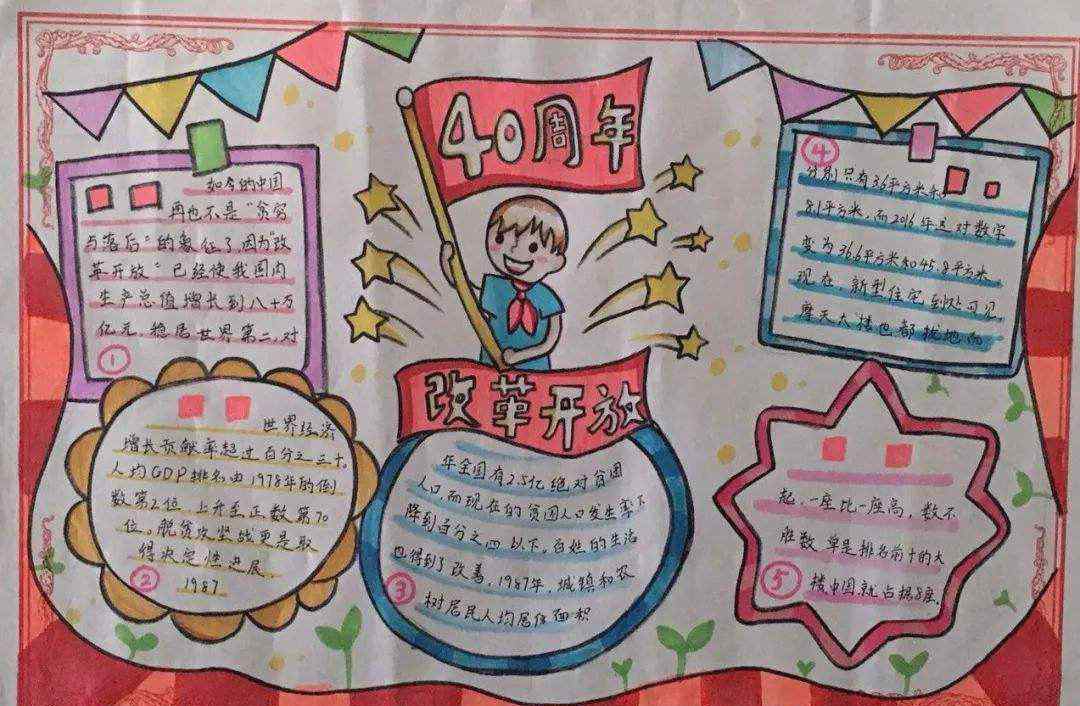 40周年
改革开放
如今的中国
再也不是“贫穷
与落后”的象征了因为“改
革开放”已经使我国内
生产总值增长到八十万
亿元,稳居世界第二,对
①
世界经济
增长贡献率超过百分之三十,
人均GDP排名由1978年的倒
数第2位,上升至正数第70
位。脱贫攻坚战更是取
得决定性进展
1987
②
年全国有2.5亿绝对贫困
人口,而现在的贫困人口发生率下
降到百分之四以下。百姓的生活
也得到了改善,1987年,城镇和农
村居民人均居住面积
③
④
分别只有3.6平方米和
8.1平方米,而2016年这一对数字
变为36.6平方米和45.8平方米,
现在,新型住宅到处可见,
摩天大楼也都拔地而
起,一座比一座高,数不
胜数,单是排名前十的大
楼中国就占据8座.
⑤